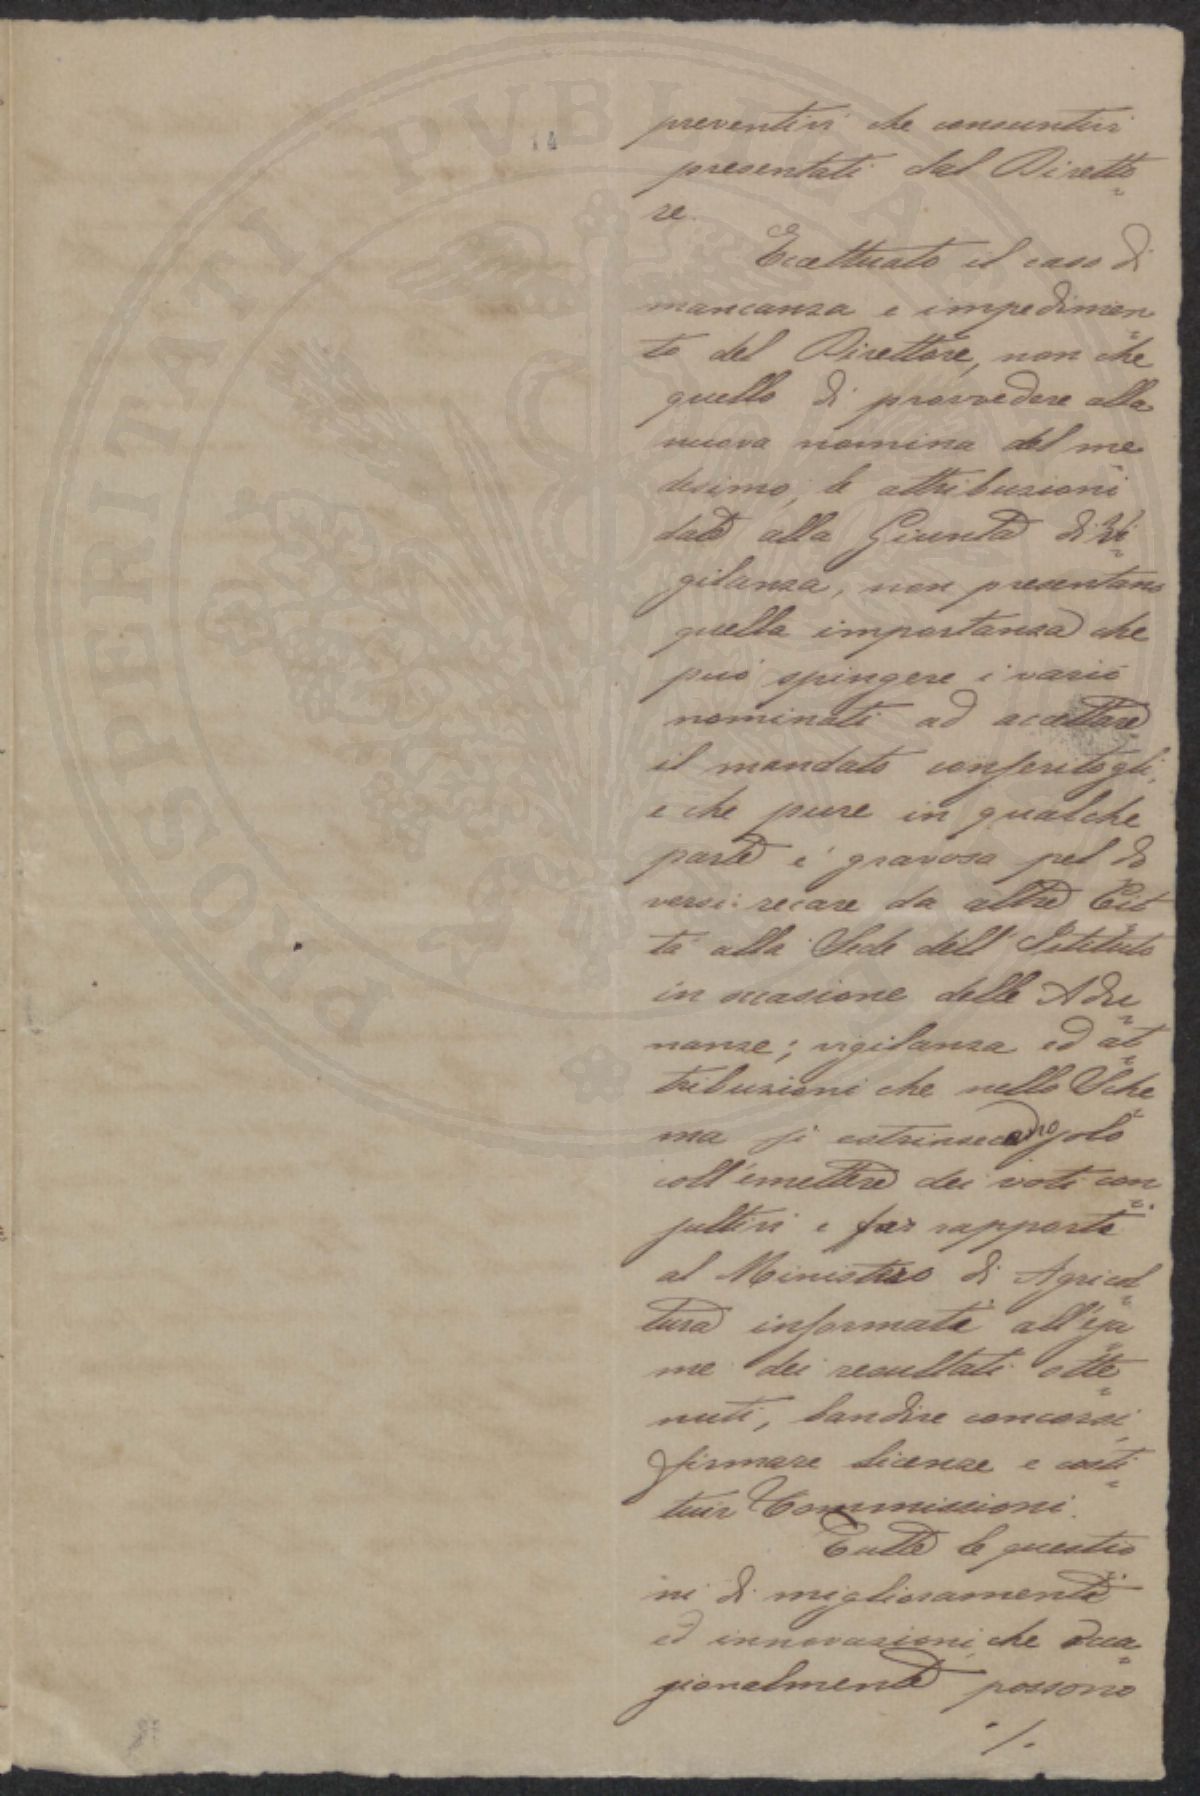 14
preventivi che consuntivi
presentati dal Diretto=
re.
Eccettuato il caso di
mancanza e impedimen=
to del Direttore, non che
quello di provvedere alla
nuova nomina del me=
desimo, le attribuzioni
date alla Giunta di Vi=
gilanza, non presentano
quella importanza che
può spingere i varii
nominati ad accettare
il mandato conferitogli,
e che pure in qualche
parte è gravosa pel do
versi recare da altre Cit=
tà alla Sede dell'Istituto
in occasione delle Adu=
nanze; vigilanza ed at=
tribuzioni che nello Sche=
ma si estrinsecano solo
coll'emettere dei voti con=
sultivi e far rapporti
al Ministero di Agricol=
tura informati all'esa=
me dei resultati otte=
nuti, bandire concorsi,
firmare licenze e costi=
tuir Commissioni.
Tutte le questio
ni di miglioramenti
ed innovazioni, che occa=
sionalmente possono
./.
PROSPERITATI PVBLICAE